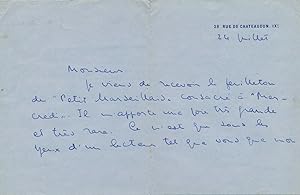 28 RUE DE CHATEAUDUN. IXE
24 juillet
Monsieur
Je viens de recevoir le feuilleton
du "Petit Marseillais" consacré à "Mer-
credi". Il m'apporte une joie très grande
et très rare. Ce n'est que sous les
yeux d'un lecteur tel que vous que mon